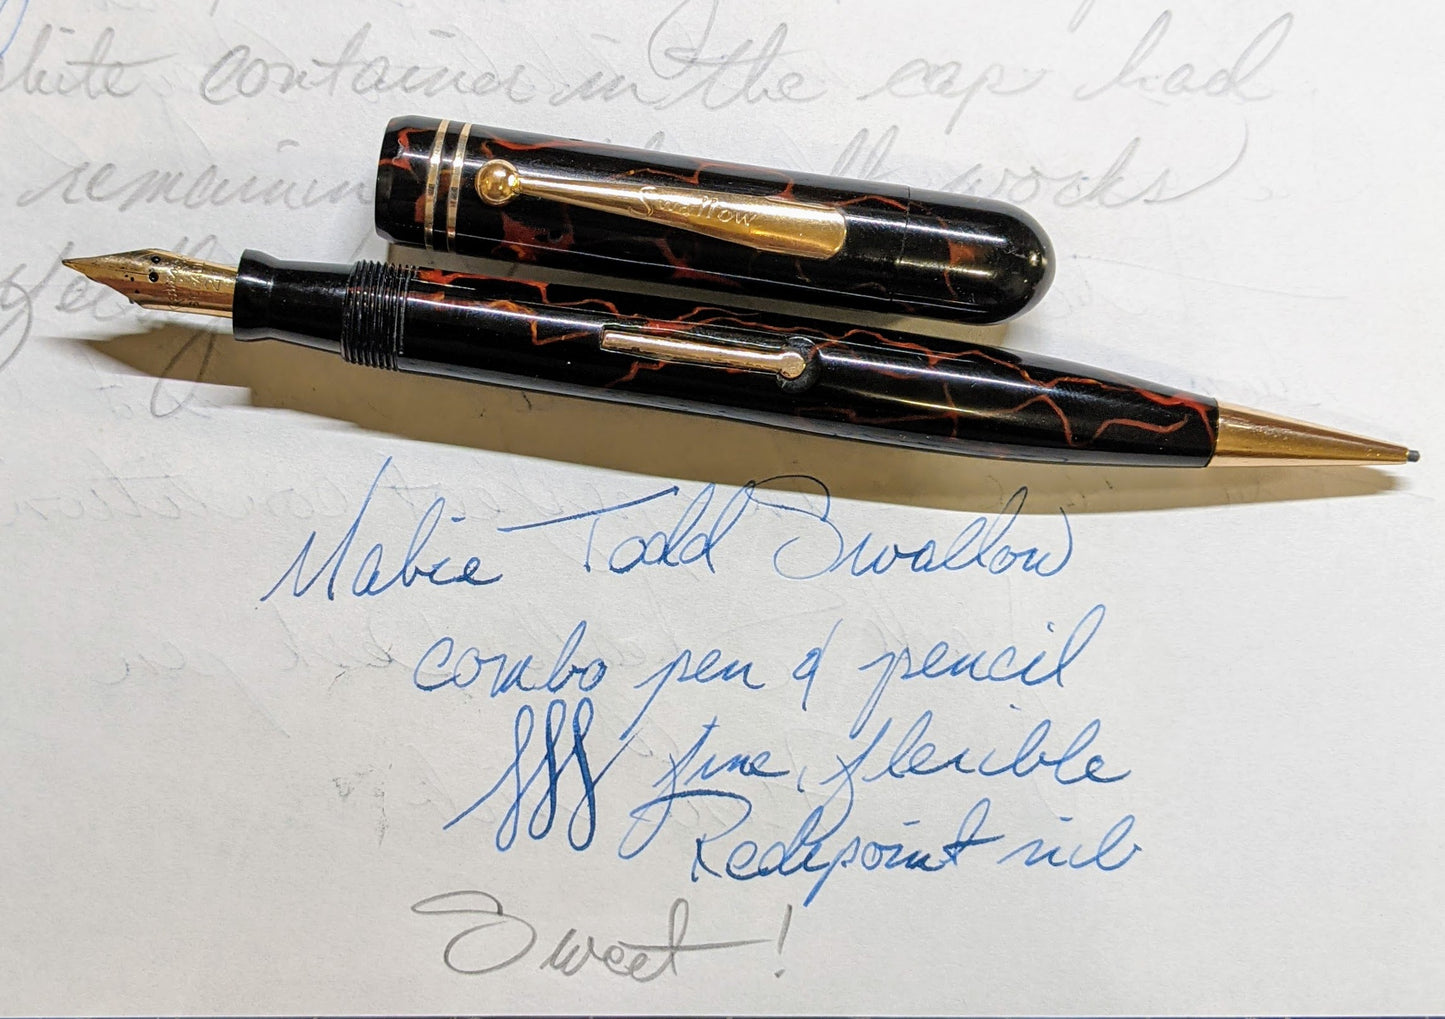 white container in the cap had
remainin works
Swallow
Mabie Todd Swallow
combo pen & pencil
fff fine, flexible
Redipoint nib
Sweet!